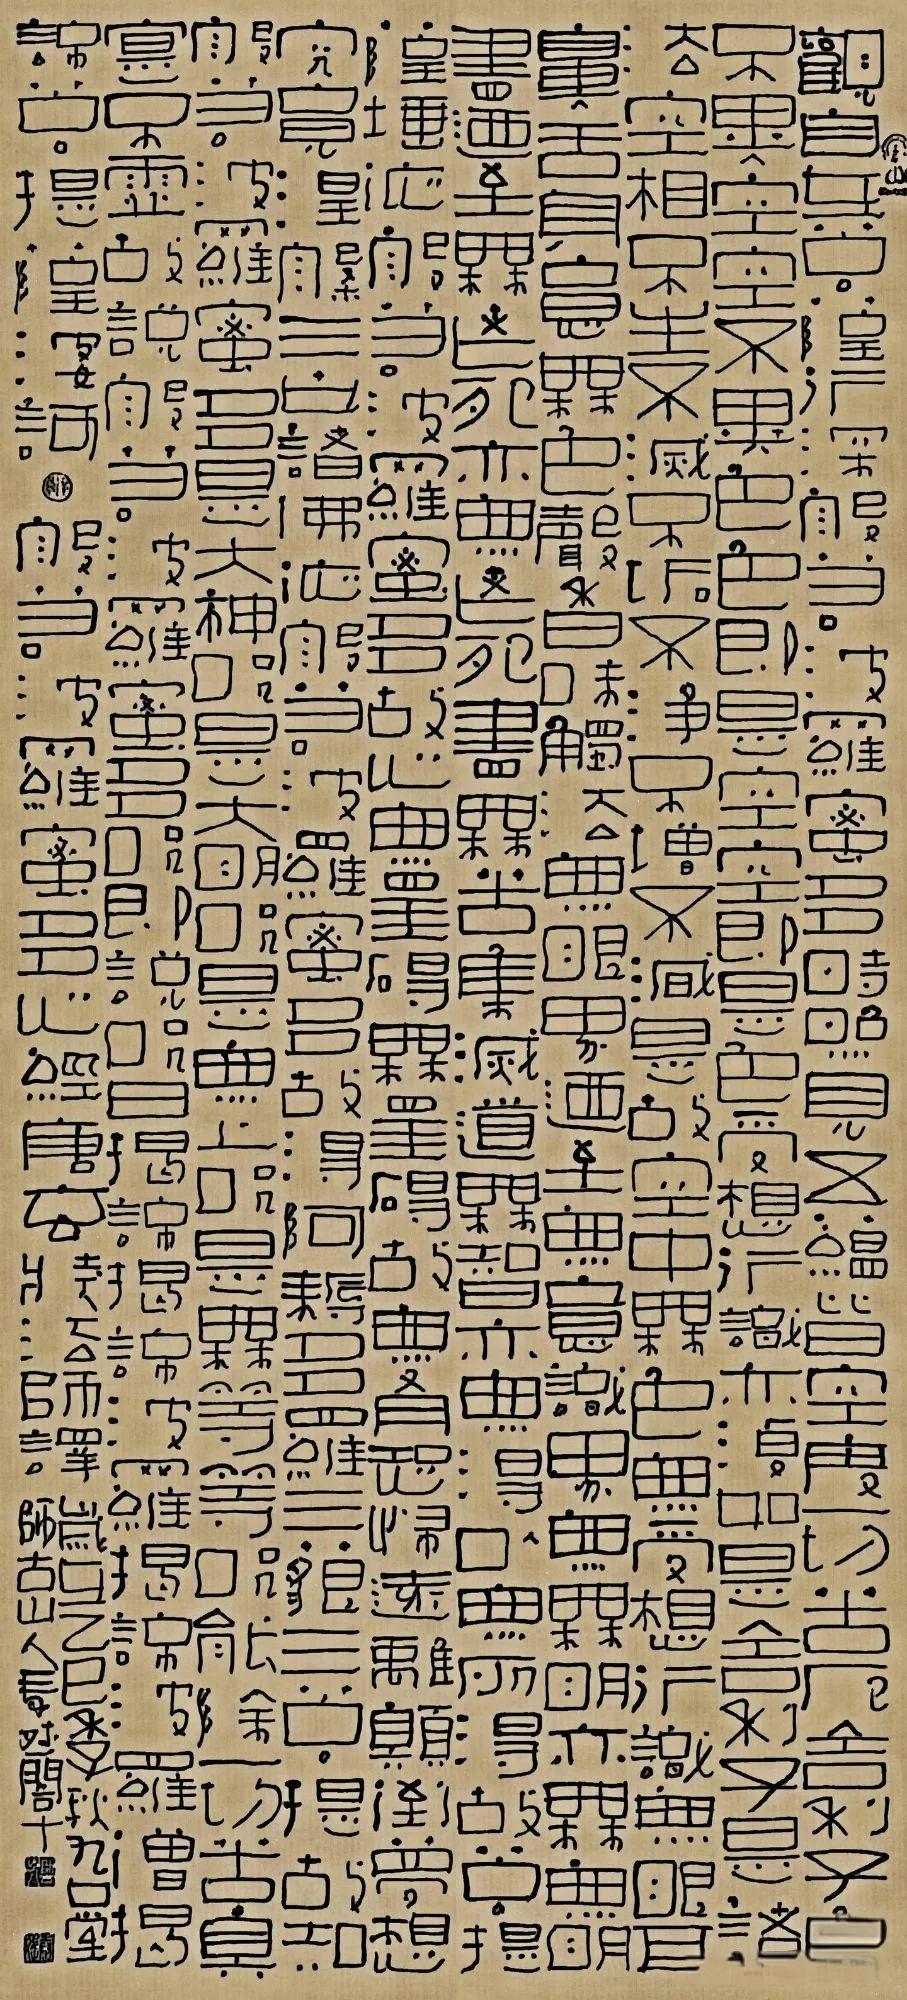 觀自在菩薩行深般若波羅蜜多時照見五蘊皆空度一切苦厄舍利子色
不異空空不異色色即是空空即是色受想行識亦復如是舍利子是諸
法空相不生不滅不垢不淨不增不減是故空中無色無受想行識無眼耳
鼻舌身意無色聲香味觸法無眼界乃至無意識界無無明亦無無明
盡乃至無老死亦無老死盡無苦集滅道無智亦無得以無所得故菩提
薩埵依般若波羅蜜多故心無罣礙無罣礙故無有恐怖遠離顛倒夢想
究竟涅槃三世諸佛依般若波羅蜜多故得阿耨多羅三藐三菩提故知
般若波羅蜜多是大神咒是大明咒是無上咒是無等等咒能除一切苦真
實不虛故說般若波羅蜜多咒即說咒曰揭諦揭諦波羅揭諦波羅僧揭
諦菩提薩婆訶般若波羅蜜多心經唐